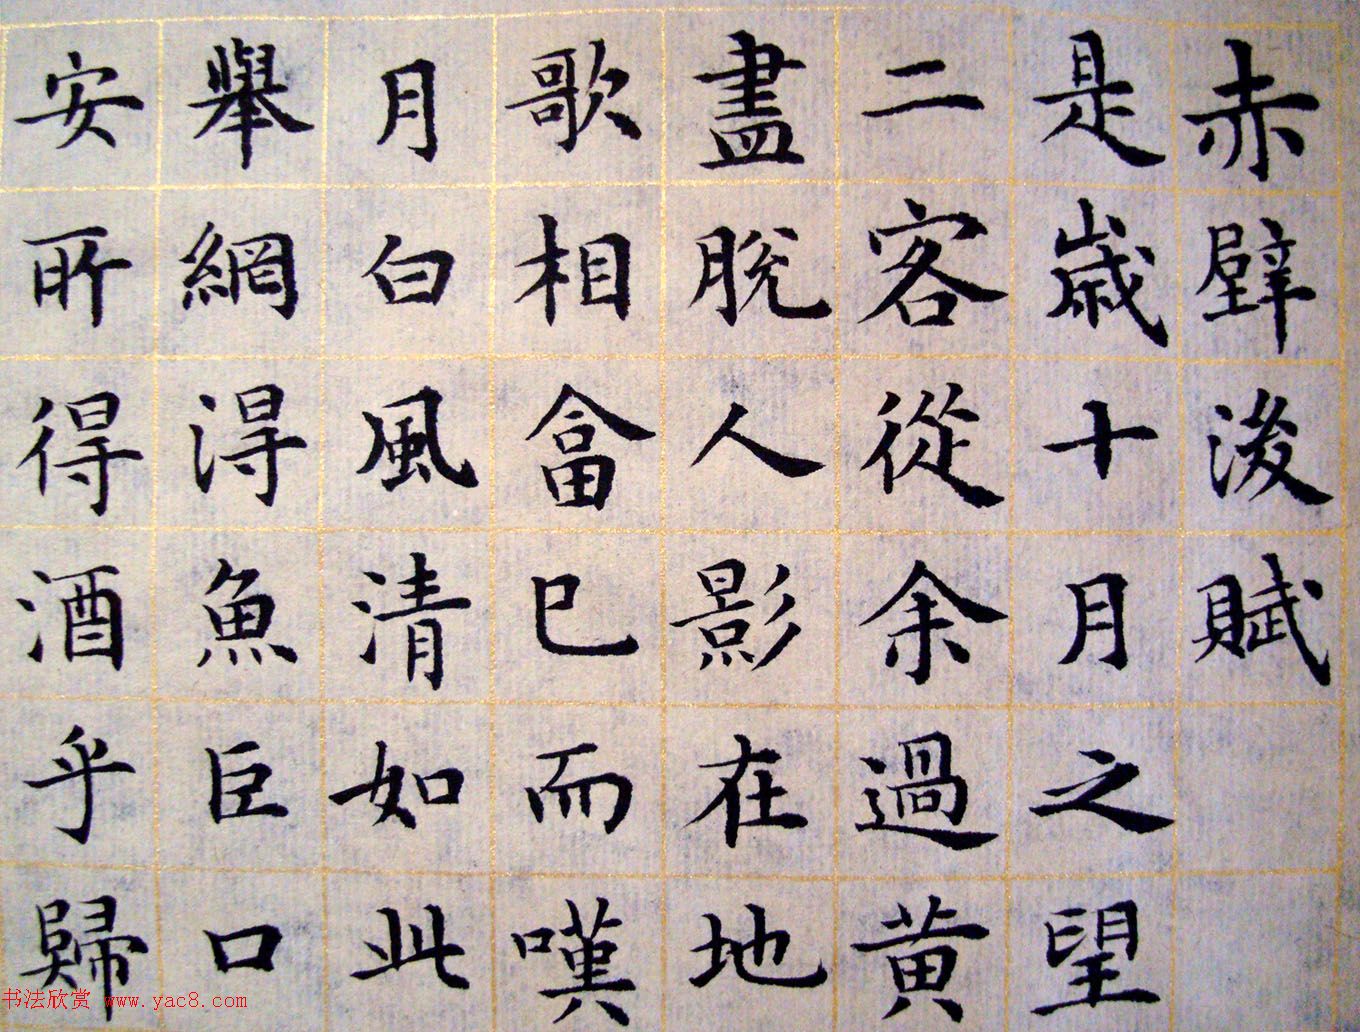 赤壁後賦
是歳十月之望
二客從余過黄
盡脫人影在地
歌相畣已而嘆
月白風清如此
舉網得魚巨口
安所得酒乎歸
书法欣赏 www.yac8.com